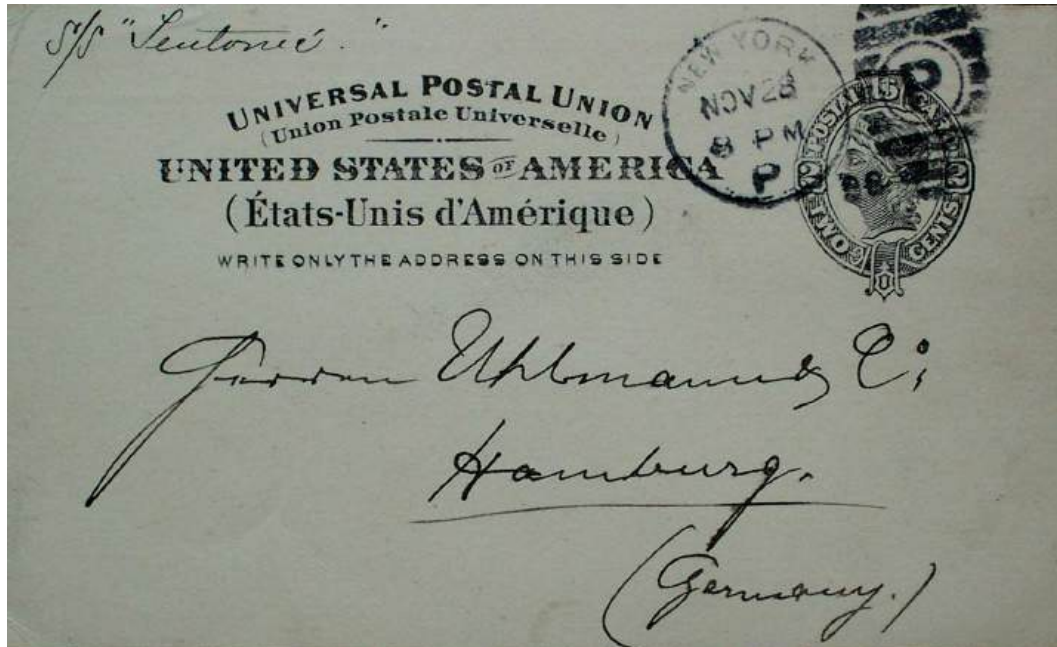 S/S "Teutonic."
UNIVERSAL POSTAL UNION
(Union Postale Universelle)
UNITED STATES OF AMERICA
(États-Unis d'Amérique)
WRITE ONLY THE ADDRESS ON THIS SIDE
NEW YORK
NOV 28
8 PM
P
P
POSTAL CARD
2 2
TWO CENTS
Herren Uhlmann & Co
Hamburg.
(Germany.)